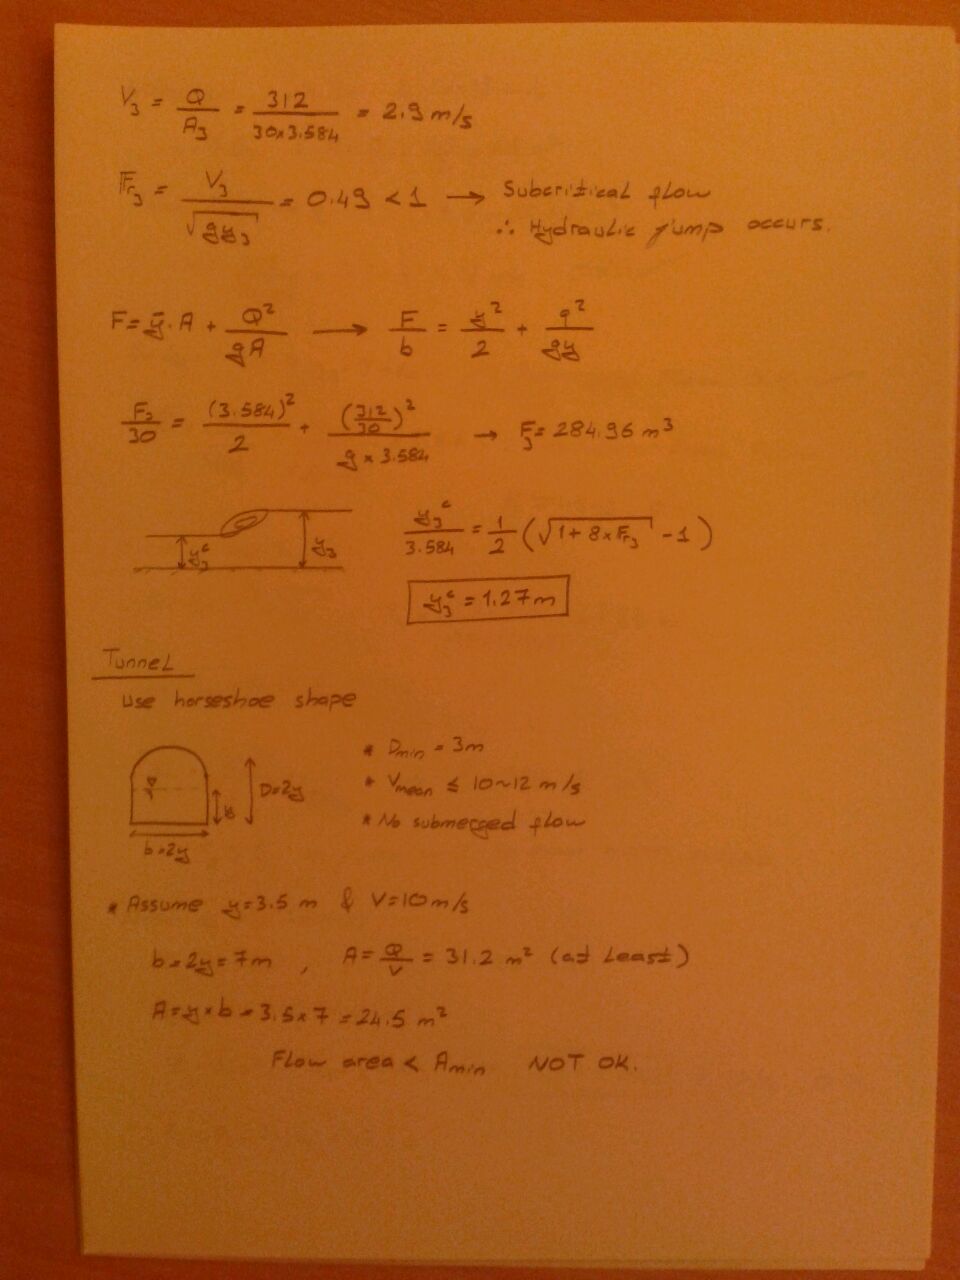 V₃ = Q/A₃ = 312/(30×3.584) = 2.9 m/s
Fr₃ = V₃/√(gy₃) = 0.49 < 1 → Subcritical flow
∴ Hydraulic jump occurs.
F = ȳ·A + Q²/(gA) → F/b = y²/2 + q²/(gy)
F₃/30 = (3.584)²/2 + (312/30)²/(g×3.584) → F₃ = 284.96 m³
y₃ᶜ y₃
y₃ᶜ/3.584 = 1/2 (√(1+8×Fr₃) - 1)
y₃ᶜ = 1.27 m
Tunnel
Use horseshoe shape
* Dmin = 3m
* Vmean ≤ 10~12 m/s
* No submerged flow
y D=2y
b=2y
* Assume y=3.5 m & V=10 m/s
b=2y=7m , A=Q/V = 31.2 m² (at Least)
A=y×b=3.5×7=24.5 m²
Flow area < Amin NOT OK.